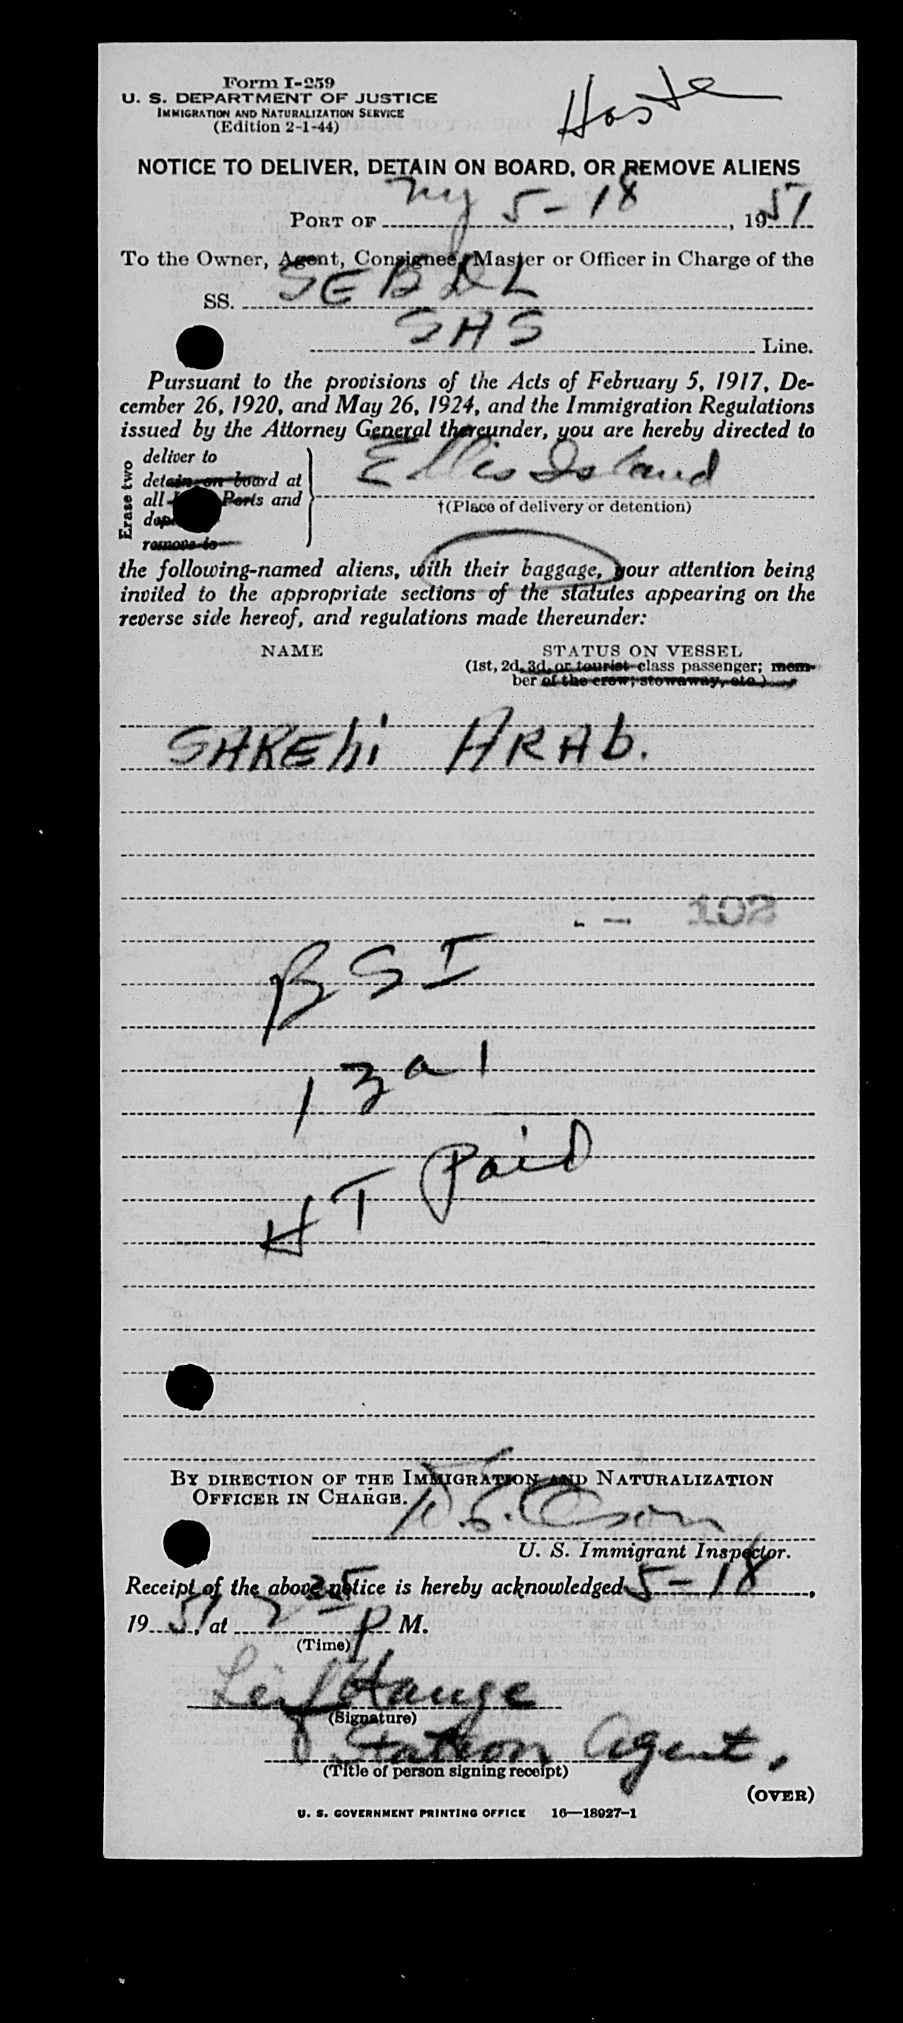 Form I-259
U. S. DEPARTMENT OF JUSTICE
IMMIGRATION AND NATURALIZATION SERVICE
(Edition 2-1-44)
NOTICE TO DELIVER, DETAIN ON BOARD, OR REMOVE ALIENS
PORT OF NY 5-18, 1951
To the Owner, Agent, Consignee, Master or Officer in Charge of the
SS. SEBDL
SAS Line.
Pursuant to the provisions of the Acts of February 5, 1917, De-
cember 26, 1920, and May 26, 1924, and the Immigration Regulations
issued by the Attorney General thereunder, you are hereby directed to
Erase two
deliver to
detain on board at
all Ports and
remove to
Ellis Island
†(Place of delivery or detention)
the following-named aliens, with their baggage, your attention being
invited to the appropriate sections of the statutes appearing on the
reverse side hereof, and regulations made thereunder:
NAME STATUS ON VESSEL
(1st, 2d, 3d, or tourist-class passenger; mem-
ber of the crew; stowaway, etc.)
SAREhi ARAb.
BSI
13a1
HT Paid
BY DIRECTION OF THE IMMIGRATION AND NATURALIZATION
OFFICER IN CHARGE.
U. S. Immigrant Inspector.
Receipt of the above notice is hereby acknowledged 5-18,
1951, at 2 35 P M.
(Time)
Leif Hauge
(Signature)
Station Agent,
(Title of person signing receipt)
(OVER)
U. S. GOVERNMENT PRINTING OFFICE 16—18927-1